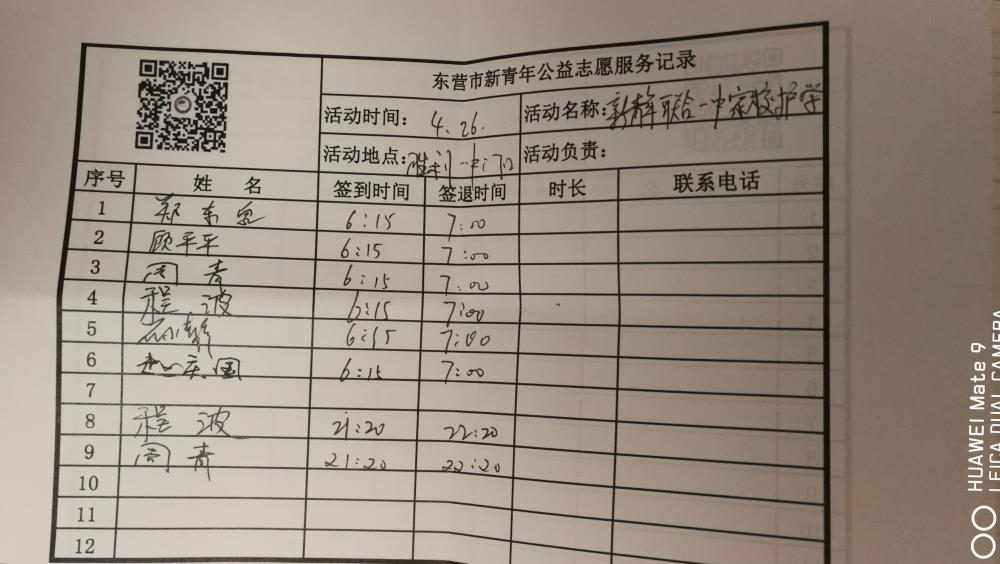 东营市新青年公益志愿服务记录
活动时间: 4.26. 活动名称: 联合一中家校护学
活动地点: 胜利一中门口 活动负责:
序号 姓名 签到时间 签退时间 时长 联系电话
1 郑东 6:15 7:00
2 顾平平 6:15 7:00
3 周青 6:15 7:00
4 程波 6:15 7:00
5 6:15 7:00
6 庆国 6:15 7:00
7
8 程波 21:20 22:20
9 周青 21:20 22:20
10
11
12
HUAWEI Mate 9
LEICA DUAL CAMERA